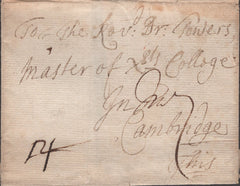 For the Revd. Dr. Towers
Master of Xts College
In
Cambridge
This
14